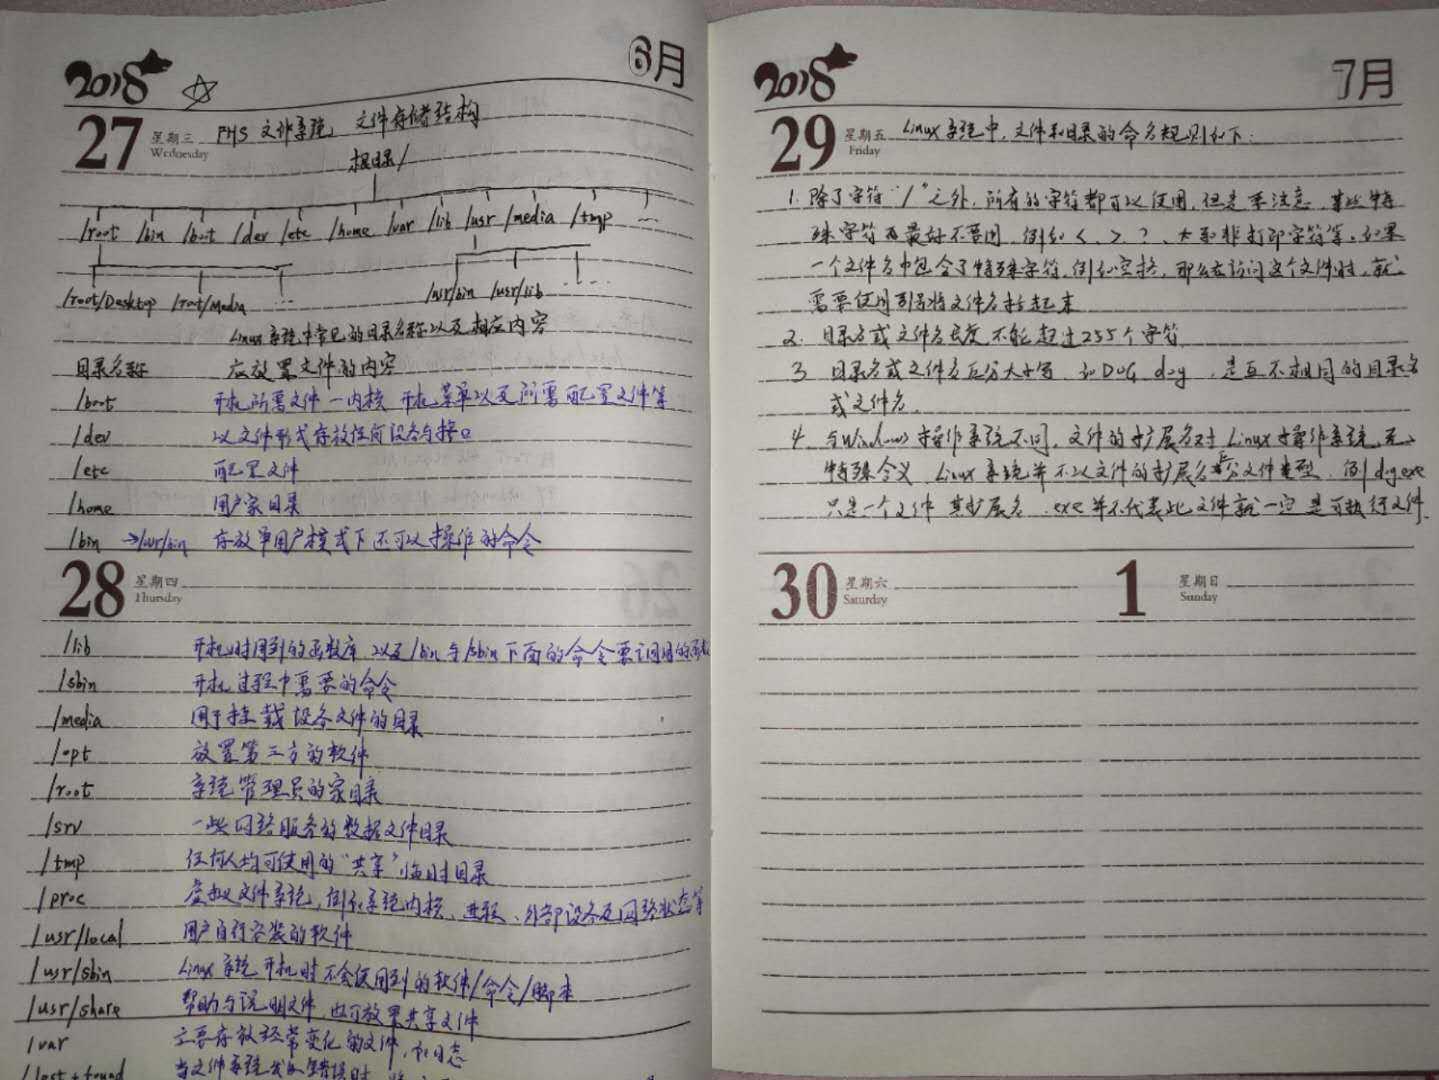 2018 6月
27 星期三 Wednesday FHS 文件系统, 文件存储结构
根目录/
/root /bin /boot /dev /etc /home /var /lib /usr /media /tmp ...
/root/Desktop /root/Media ... /usr/bin /usr/lib ...
Linux系统中常见的目录名称以及相应内容
目录名称 应放置文件的内容
/boot 开机所需文件—内核 开机菜单以及所需配置文件等
/dev 以文件形式存放任何设备与接口
/etc 配置文件
/home 用户家目录
/bin →/usr/bin 存放单用户模式下还可以操作的命令
28 星期四 Thursday
/lib 开机时用到的函数库 以及/bin与/sbin下面的命令要调用的函数
/sbin 开机过程中需要的命令
/media 用于挂载设备文件的目录
/opt 放置第三方的软件
/root 系统管理员的家目录
/srv 一些网络服务的数据文件目录
/tmp 任何人均可使用的“共享”临时目录
/proc 虚拟文件系统, 例如系统内核、进程、外部设备及网络状态等
/usr/local 用户自行安装的软件
/usr/sbin Linux系统开机时不会使用到的软件/命令/脚本
/usr/share 帮助与说明文件, 也可放置共享文件
/var 主要存放经常变化的文件, 如日志
/lost+found 当文件系统发生错误时
2018 7月
29 星期五 Friday Linux系统中, 文件和目录的命名规则如下:
1. 除了字符“/”之外, 所有的字符都可以使用, 但是要注意, 某些特
殊字符最好不要用, 例如<、>、?、*和非打印字符等。如果
一个文件名中包含了特殊字符, 例如空格, 那么在访问这个文件时, 就
需要使用引号将文件名括起来
2. 目录名或文件名长度不能超过255个字符
3 目录名或文件名区分大小写 如DOG dog , 是互不相同的目录名
或文件名.
4. 与Windows操作系统不同, 文件的扩展名对Linux操作系统无
特殊含义 Linux系统并不以文件的扩展名区分文件类型. 例dog.exe
只是一个文件 其扩展名 .exe并不代表此文件就一定是可执行文件.
30 星期六 Saturday 1 星期日 Sunday